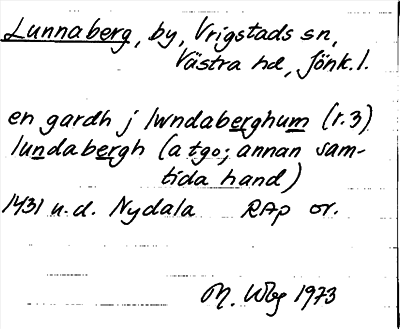 Lunnaberg, by, Vrigstads sn,
Västra hd, Jönk. l.
en gardh j lwndaberghum (r. 3)
lundabergh (a tgo; annan sam-
tida hand)
1431 u. d. Nydala RAp or.
M. Wbg 1973